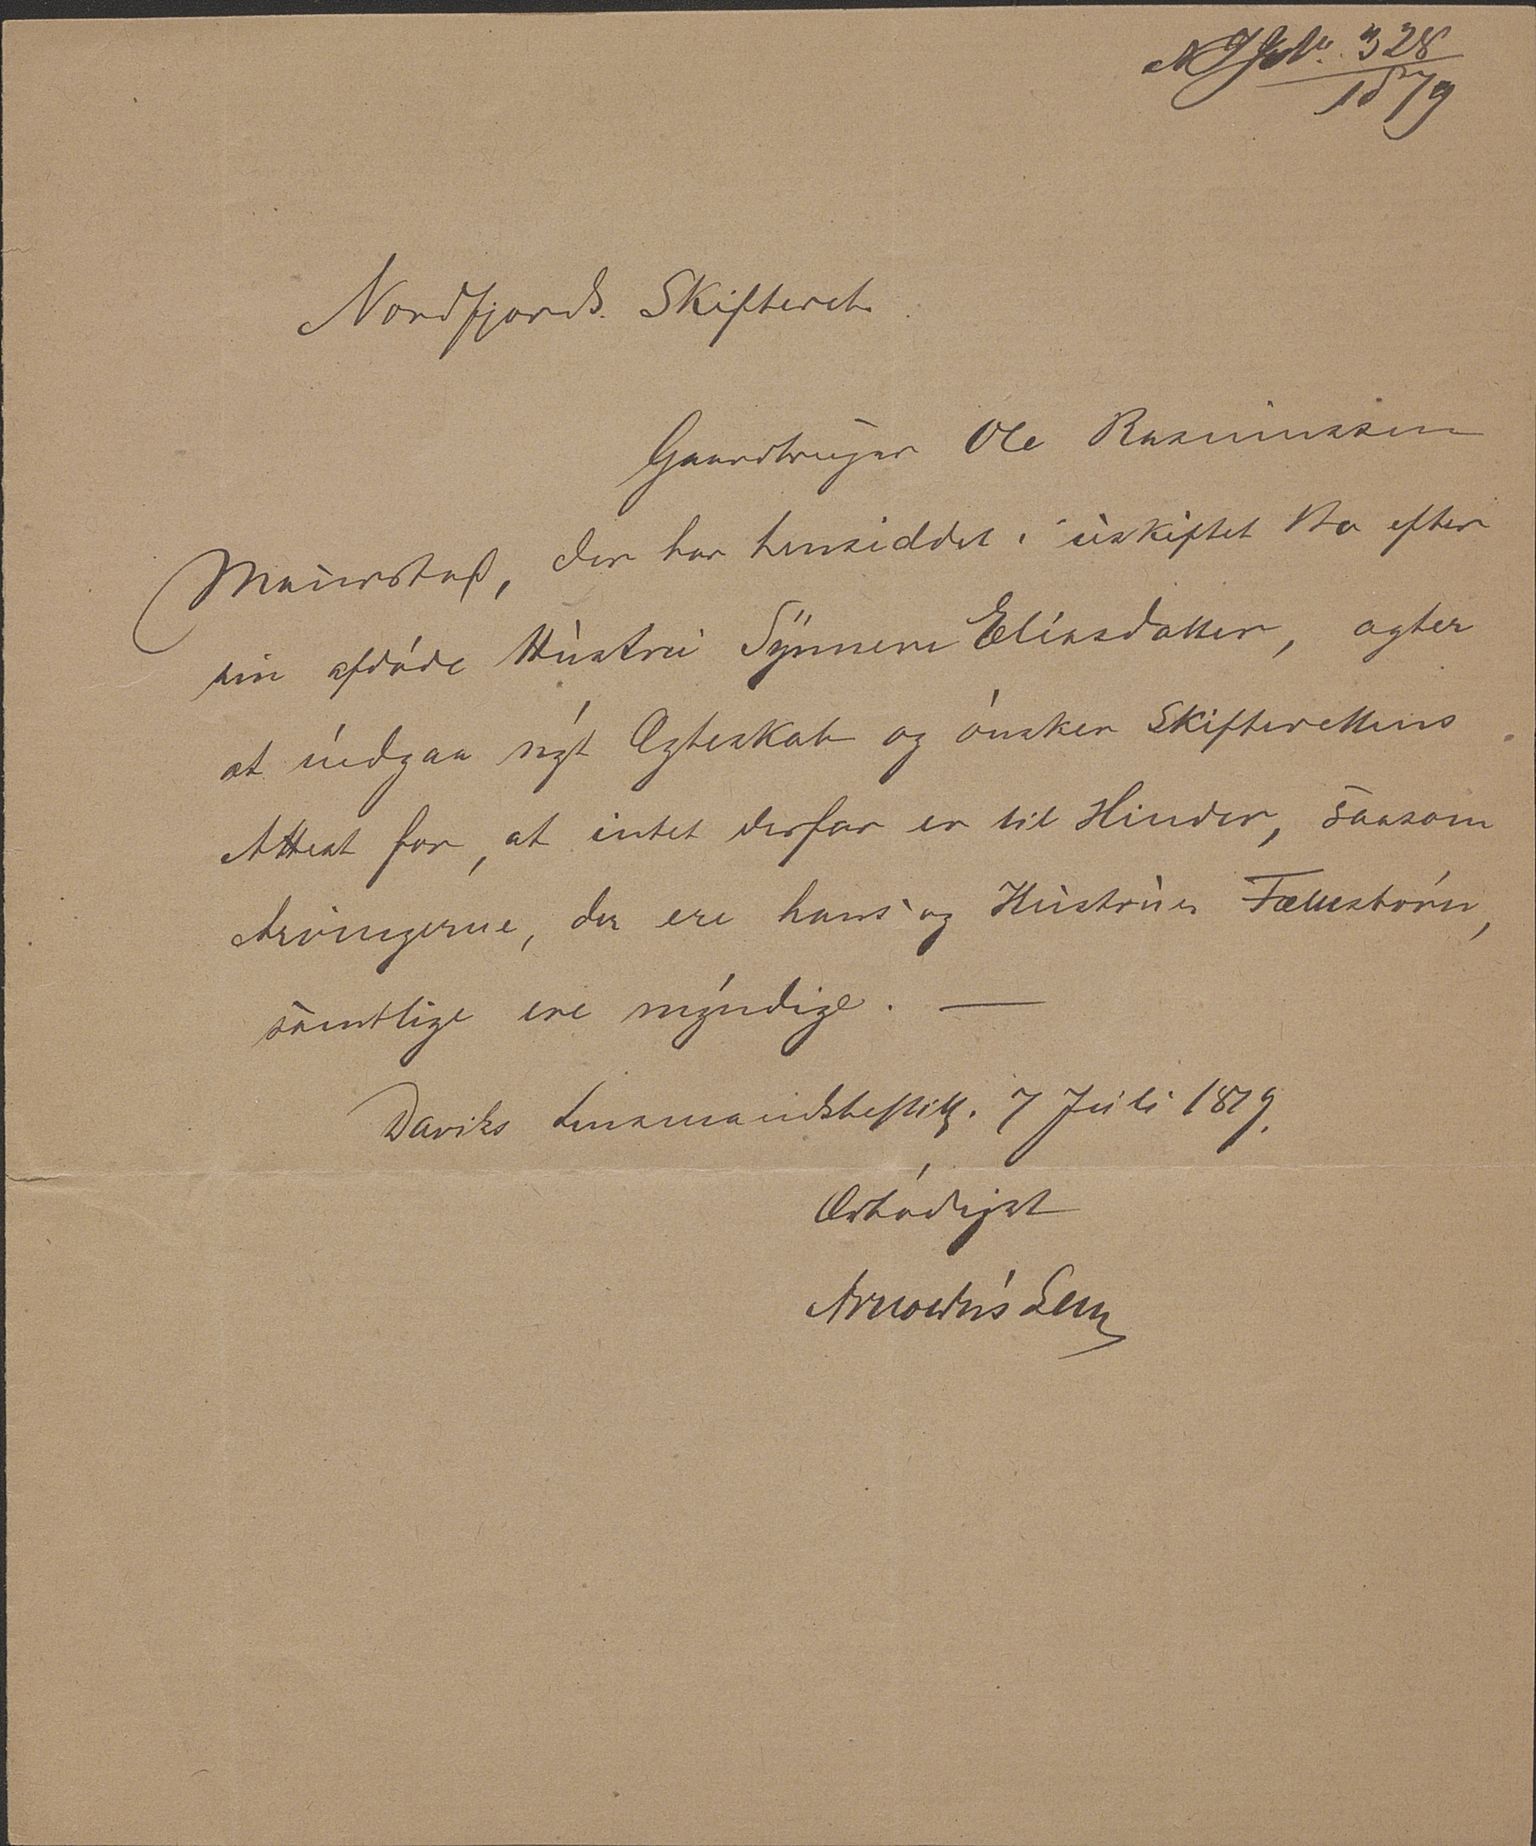 328
1879
Nordfjords Skifteret.
Gaardbruger Ole Rasmussen
Maurstad, der har hensiddet i uskiftet Bo efter
sin afdøde Hustru Synneve Eliasdatter, agter
at indgaa nyt Ægteskab og ønsker Skifterettens
Attest for, at intet derfor er til Hinder, saasom
Arvingerne, der ere hans og Hustrues Fællesbørn,
samtlige ere myndige. —
Daviks Lensmandsbestill. 7 Juli 1879.
Ærbødigst
Arnoldus Lem